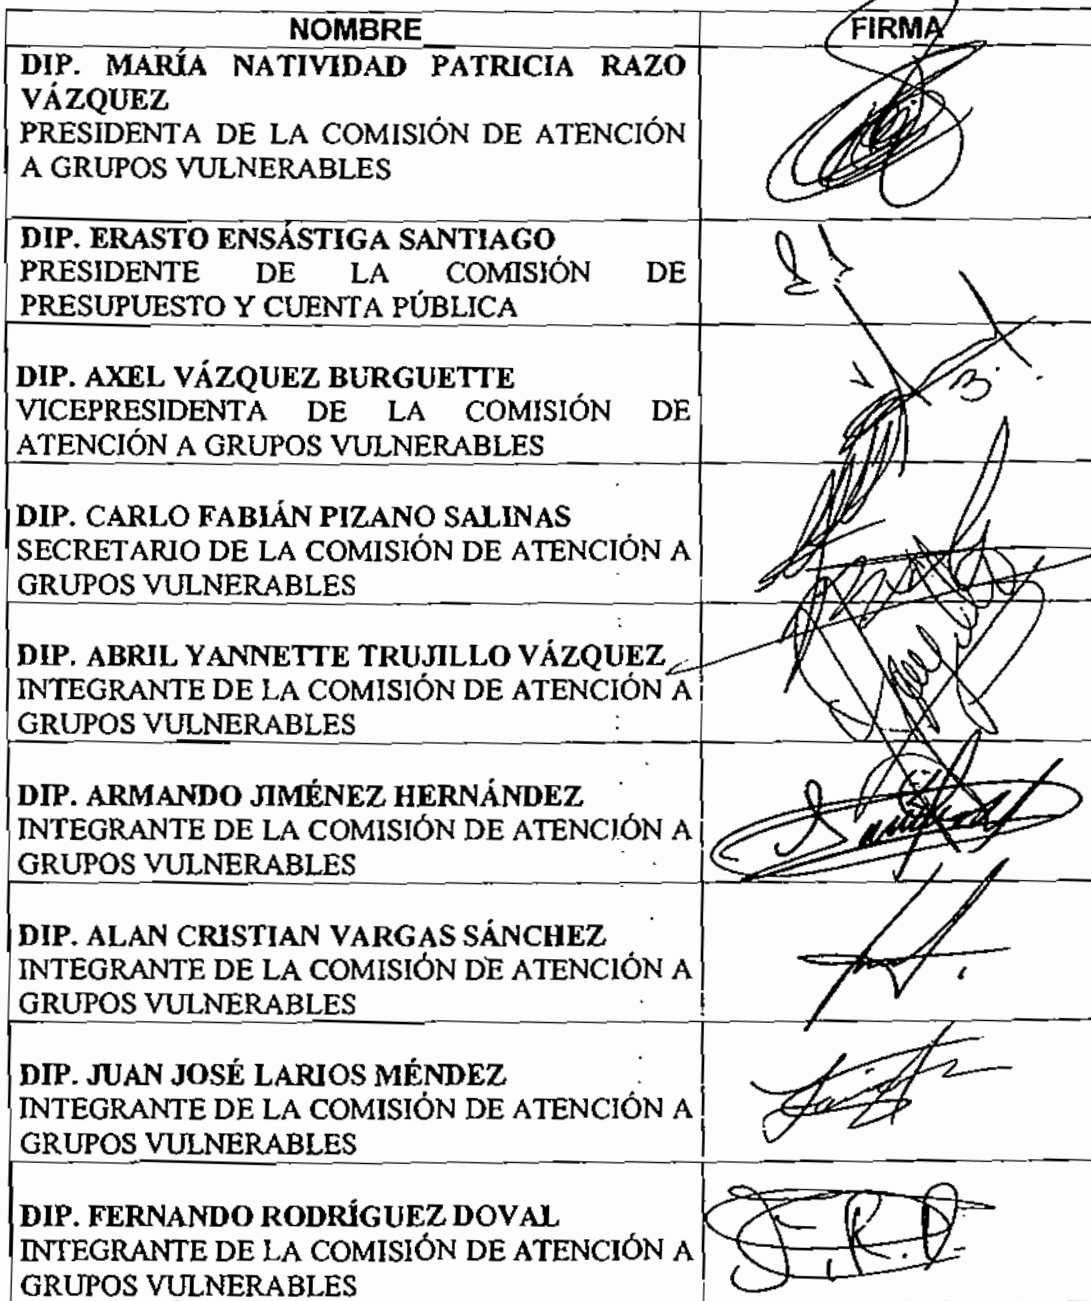 NOMBRE FIRMA
DIP. MARÍA NATIVIDAD PATRICIA RAZO
VÁZQUEZ
PRESIDENTA DE LA COMISIÓN DE ATENCIÓN
A GRUPOS VULNERABLES
DIP. ERASTO ENSÁSTIGA SANTIAGO
PRESIDENTE DE LA COMISIÓN DE
PRESUPUESTO Y CUENTA PÚBLICA
DIP. AXEL VÁZQUEZ BURGUETTE
VICEPRESIDENTA DE LA COMISIÓN DE
ATENCIÓN A GRUPOS VULNERABLES
DIP. CARLO FABIÁN PIZANO SALINAS
SECRETARIO DE LA COMISIÓN DE ATENCIÓN A
GRUPOS VULNERABLES
DIP. ABRIL YANNETTE TRUJILLO VÁZQUEZ
INTEGRANTE DE LA COMISIÓN DE ATENCIÓN A
GRUPOS VULNERABLES
DIP. ARMANDO JIMÉNEZ HERNÁNDEZ
INTEGRANTE DE LA COMISIÓN DE ATENCIÓN A
GRUPOS VULNERABLES
DIP. ALAN CRISTIAN VARGAS SÁNCHEZ
INTEGRANTE DE LA COMISIÓN DE ATENCIÓN A
GRUPOS VULNERABLES
DIP. JUAN JOSÉ LARIOS MÉNDEZ
INTEGRANTE DE LA COMISIÓN DE ATENCIÓN A
GRUPOS VULNERABLES
DIP. FERNANDO RODRÍGUEZ DOVAL
INTEGRANTE DE LA COMISIÓN DE ATENCIÓN A
GRUPOS VULNERABLES